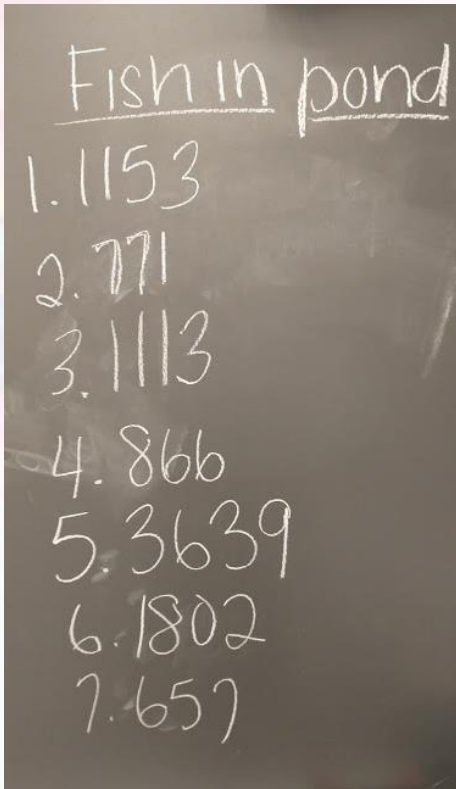 Fish in pond
1. 1153
2. 771
3. 1113
4. 866
5. 3639
6. 1802
7. 657